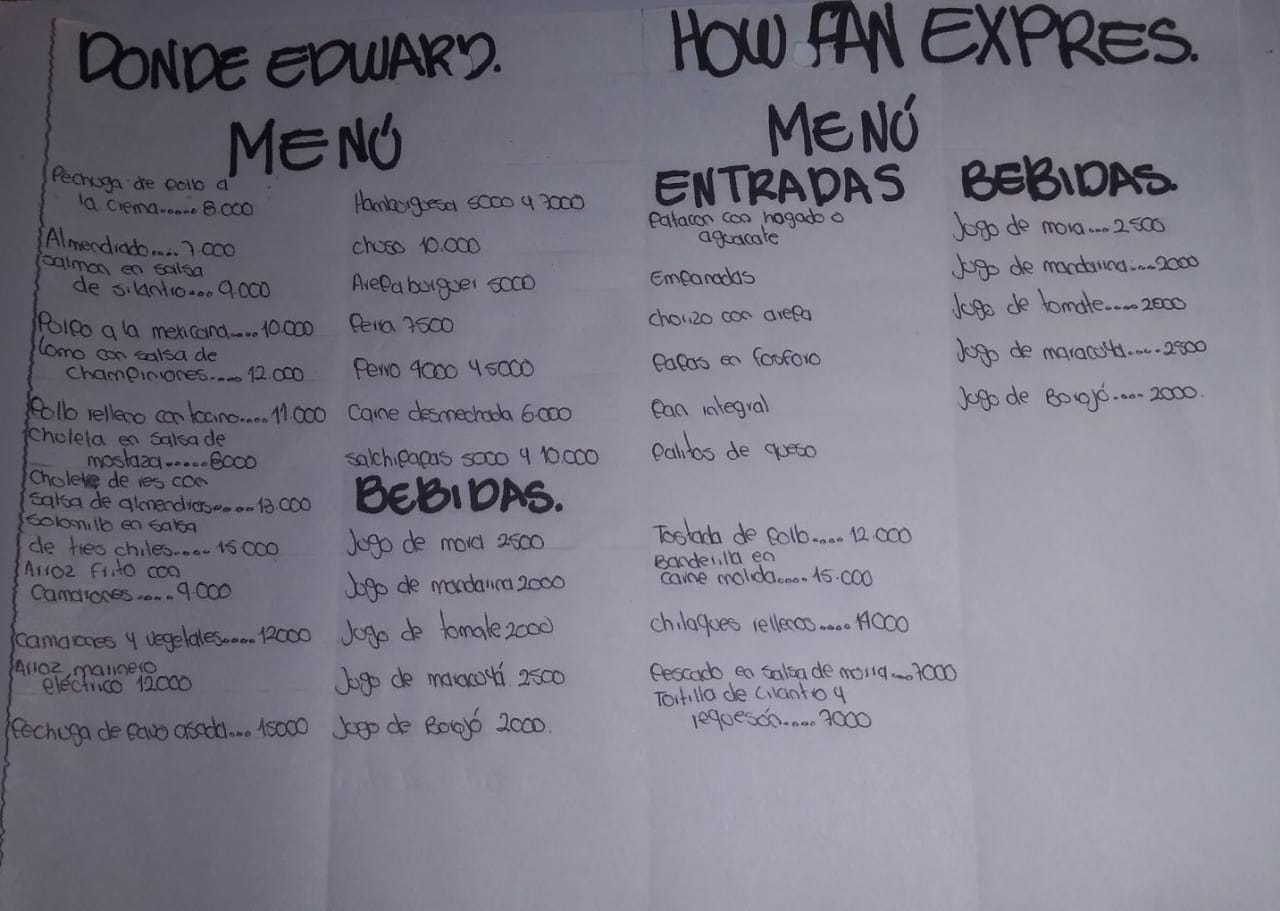 DONDE EDWARD.
MENÚ
Pechuga de pollo a
la crema..... 8.000
Almendrado.... 7.000
Salmon en salsa
de silantro... 9.000
Polpo a la mexicana.... 10.000
Lomo con salsa de
champiniones.... 12.000
Pollo relleno con tocino.... 11.000
Choleta en salsa de
mostaza...... 8000
Cholete de res con
salsa de almendras..... 13.000
Solomillo en salsa
de tres chiles.... 15.000
Arroz frito con
Camarones..... 9.000
Camarones y vegetales..... 12000
Arroz marinero
eléctrico 12000
Pechuga de pavo asada... 15000
Hamburguesa 5000 y 7000
chuso 10.000
Arepa burguer 5000
Perra 7500
Perro 4000 y 5000
Carne desmechada 6.000
salchipapas 5000 y 10.000
BEBIDAS.
Jogo de mora 2500
Jogo de mandarina 2000
Jogo de tomate 2000
Jogo de maracoyá 2500
Jogo de Borojó 2000.
HOW FAN EXPRES.
MENÚ
ENTRADAS
Patacon con hogado o
aguacate
Empanadas
chorizo con arepa
papas en fosforo
Pan integral
Palitos de queso
Tostada de pollo.... 12.000
Banderilla en
carne molida.... 15.000
chilaques rellenos.... 14000
Pescado en salsa de morra... 7000
Tortilla de cilantro y
requesón..... 7000
BEBIDAS.
Jogo de mora... 2500
Jogo de mandarina.... 2000
Jogo de tomate..... 2000
Jogo de maracoyá..... 2500
Jogo de Borojó.... 2000.